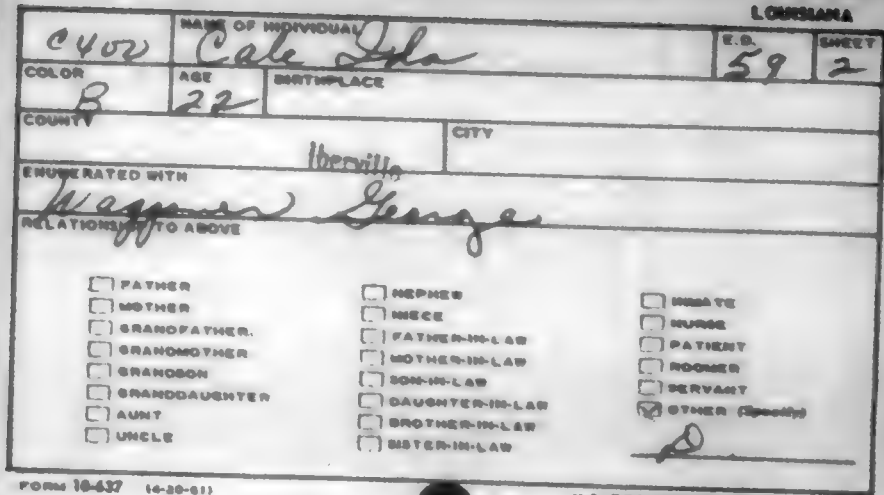 LOUISIANA
C400 NAME OF INDIVIDUAL Cale Ida E.D. 59 SHEET 2
COLOR B AGE 22 BIRTHPLACE
COUNTY Iberville CITY
ENUMERATED WITH
Wagner George
RELATIONSHIP TO ABOVE
FATHER
MOTHER
GRANDFATHER.
GRANDMOTHER
GRANDSON
GRANDDAUGHTER
AUNT
UNCLE
NEPHEW
NIECE
FATHER-IN-LAW
MOTHER-IN-LAW
SON-IN-LAW
DAUGHTER-IN-LAW
BROTHER-IN-LAW
SISTER-IN-LAW
INMATE
NURSE
PATIENT
ROOMER
SERVANT
OTHER (Specify)
FORM 10-637 (4-20-61)